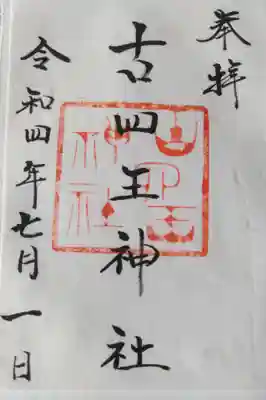 奉拝
古四王神社
令和四年七月一日